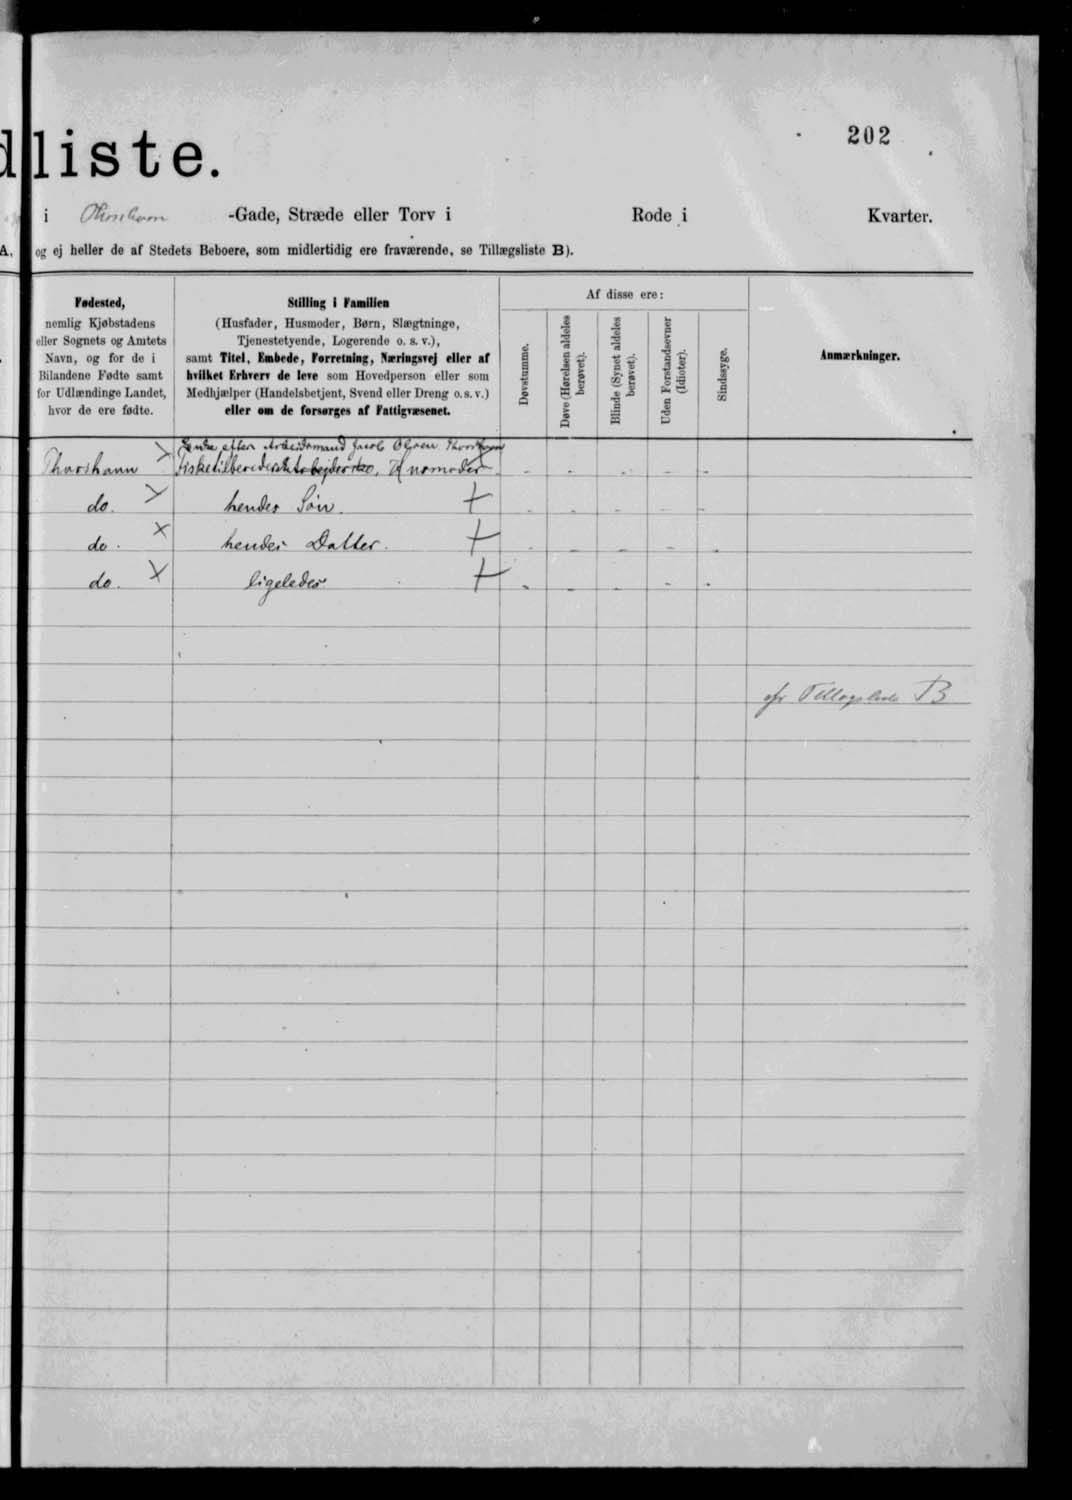 dliste.
202
i Thorshavn -Gade, Stræde eller Torv i Rode i Kvarter.
A, og ej heller de af Stedets Beboere, som midlertidig ere fraværende, se Tillægsliste B).
Fødested,
nemlig Kjøbstadens
eller Sognets og Amtets
Navn, og for de i
Bilandene Fødte samt
for Udlændinge Landet,
hvor de ere fødte.
Stilling i Familien
(Husfader, Husmoder, Børn, Slægtninge,
Tjenestetyende, Logerende o. s. v.),
samt Titel, Embede, Forretning, Næringsvej eller af
hvilket Erhverv de leve som Hovedperson eller som
Medhjælper (Handelsbetjent, Svend eller Dreng o. s. v.)
eller om de forsørges af Fattigvæsenet.
Af disse ere:
Døvstumme.
Døve (Hørelsen aldeles
berøvet).
Blinde (Synet aldeles
berøvet).
Uden Forstandsevner
(Idioter).
Sindssyge.
Anmærkninger.
Enke efter Arbeidsmand Jacob Olsen Thorshavn
Thorshavn Fisketilberederske Husmoder - - - - -
do. hendes Søn. - - - - -
do. hendes Datter. - - - - -
do. ligeledes - - - - -
cfr Tillægsliste B